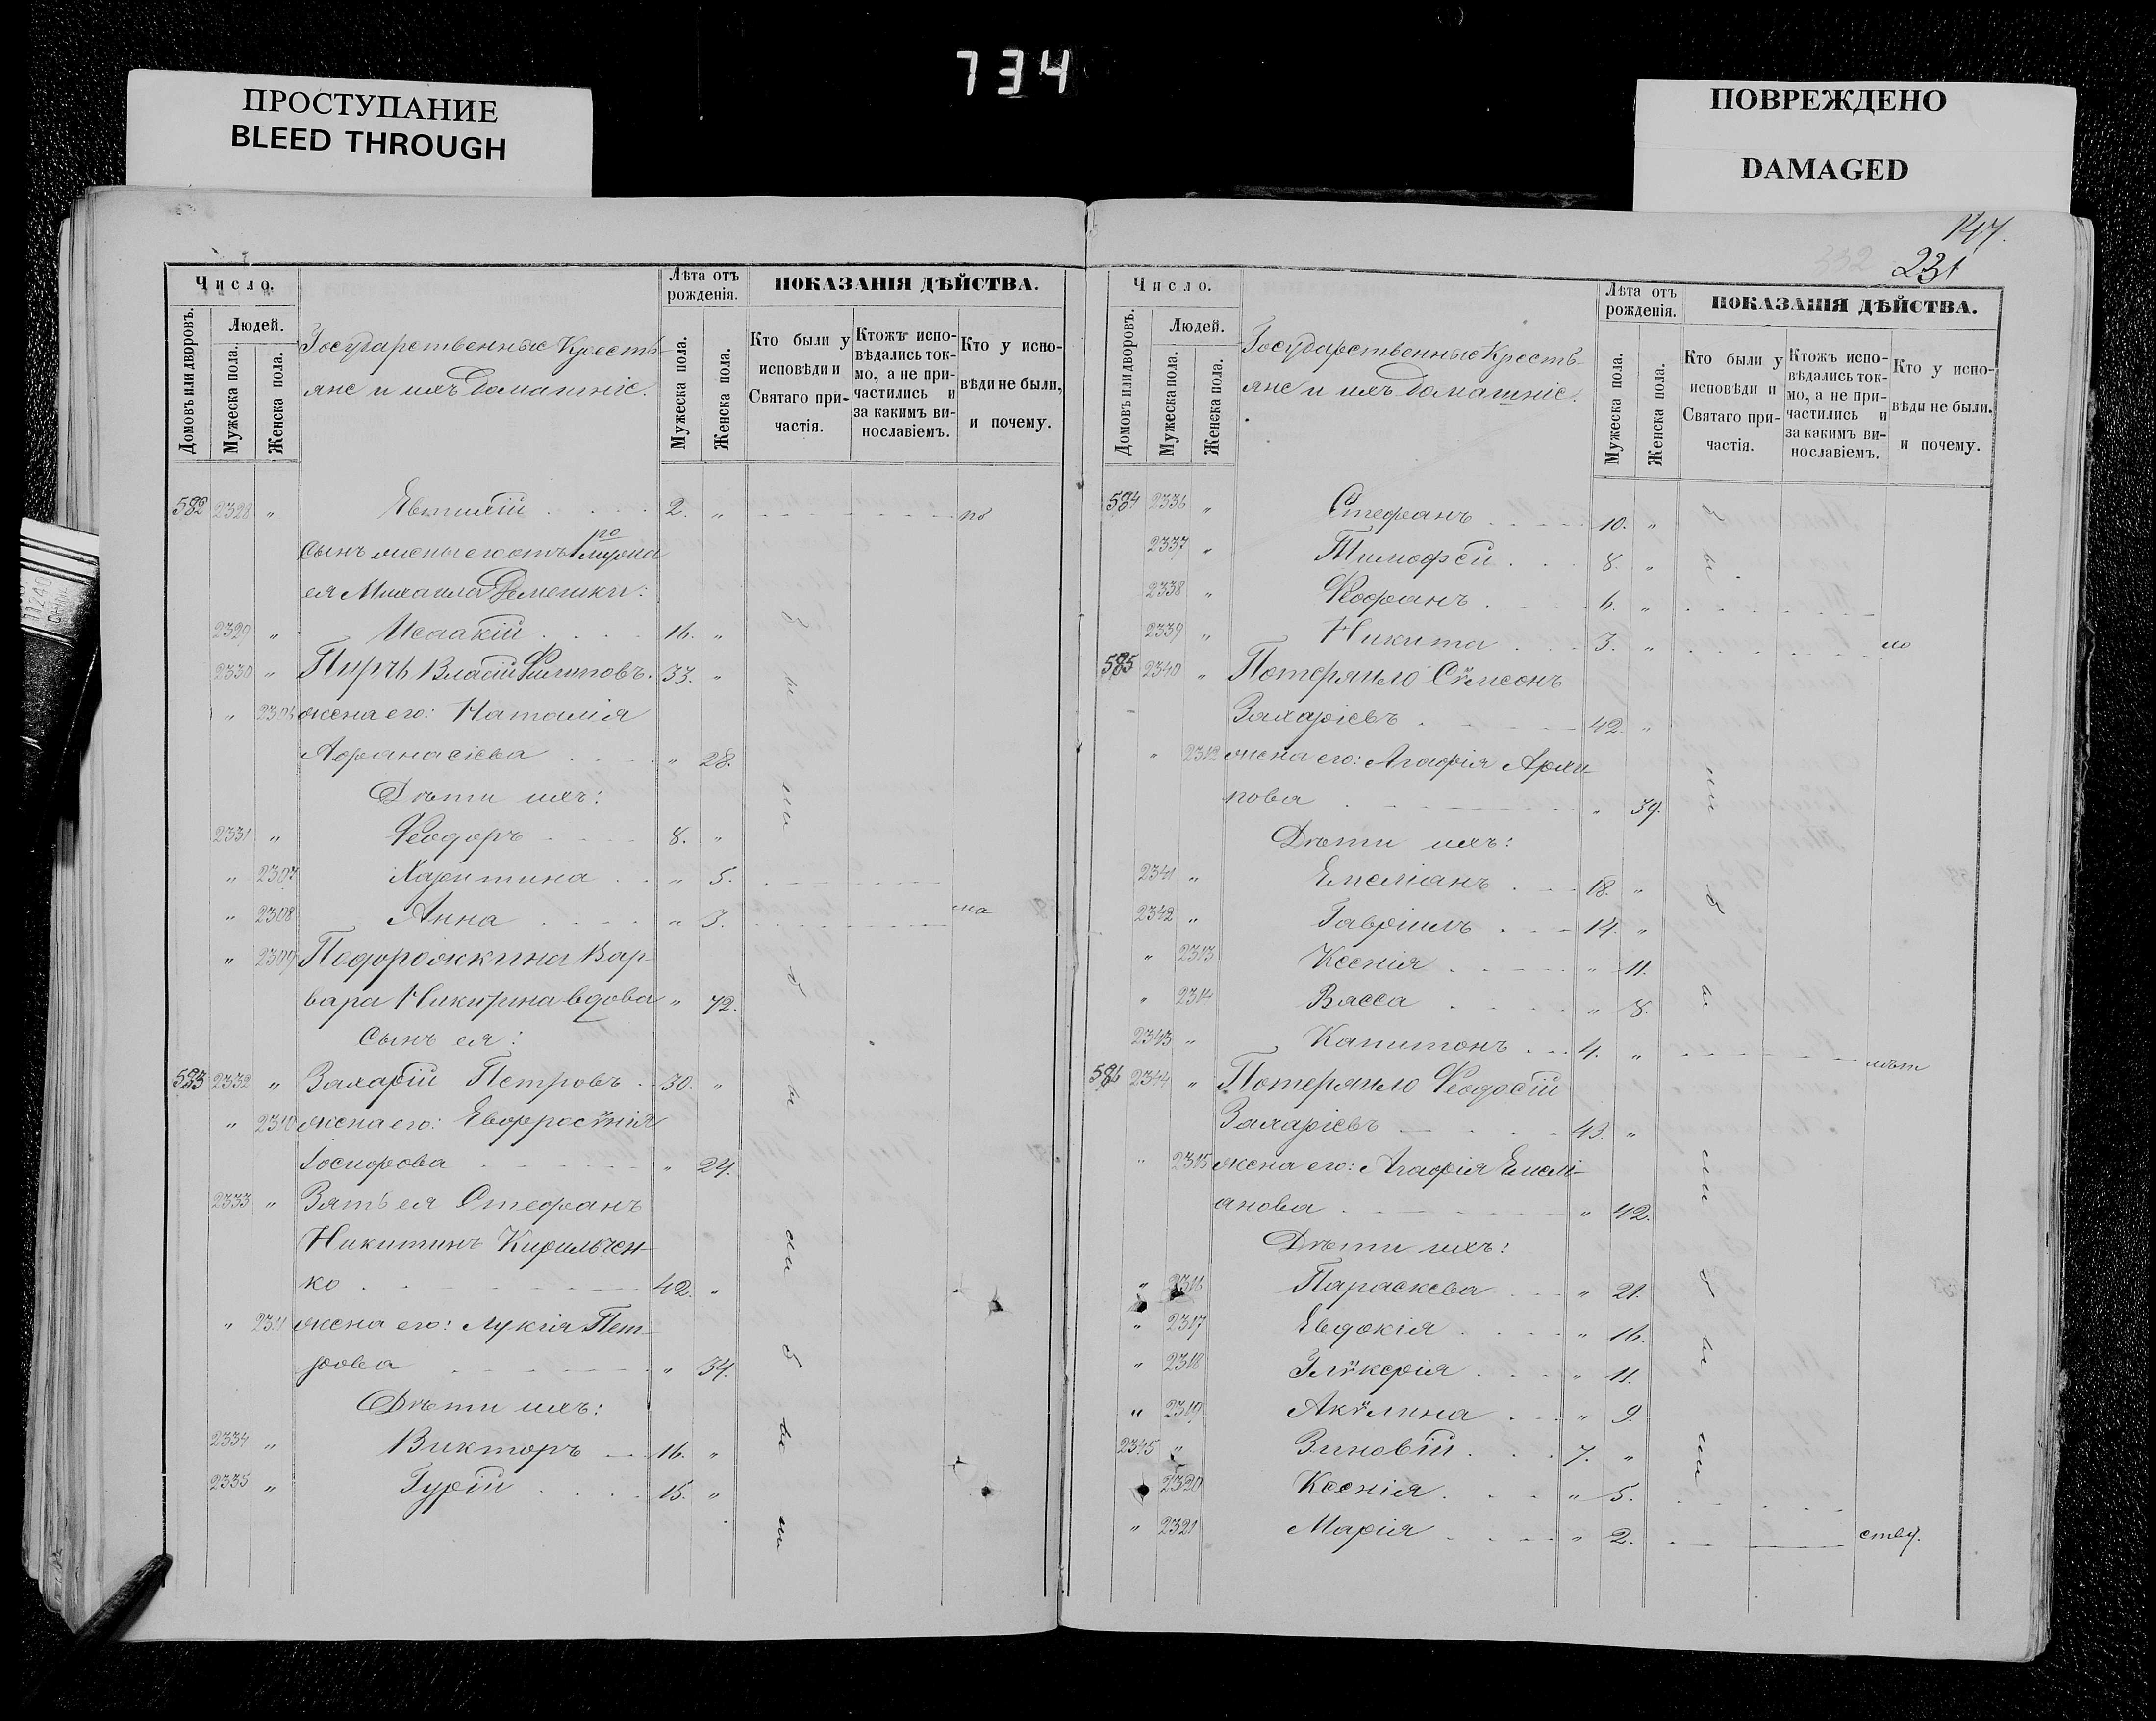 734
ПРОСТУПАНИЕ
BLEED THROUGH
ПОВРЕЖДЕНО
DAMAGED
Число.
Людей.
Домовъ или дворовъ.
Мужеска пола.
Женска пола.
Государственные Кресть-
яне и ихъ домашніе.
Лѣта отъ рожденія.
Мужеска пола.
Женска пола.
ПОКАЗАНІЯ ДѢЙСТВА.
Кто были у исповѣди и Святаго при-частія.
Ктожъ испо-вѣдались ток-мо, а не при-частились и за какимъ ви-нославіемъ.
Кто у испо-вѣди не были, и почему.
582 2328 " Евтихій 2. " по
сынъ жены его отъ
ея Михаила
2329 " Исаакій 16. "
2330 " Пирчь Власій Филиповъ. 33. "
" 2306 жена его: Наталія
Афанасіева " 28.
Дѣти ихъ:
2331 " Ѳеодоръ 8. "
" 2307 Харитина " 5.
" 2308 Анна " 3. ма
" 2309 Подорожкина Вар-
вара вдова " 72.
Сынъ ея:
583 2332 " Захарій Петровъ 30. "
" 2310 жена его: Евфросѵнія
Іосифова " 24.
2333 " Зять ея Стефанъ
Никитинъ Кирильчен-
ко 42. "
" 2311 жена его: Лукія Пет-
рова " 34.
Дѣти ихъ:
2334 " Викторъ 16. "
2335 " Гурій 15. "
б
ы
ли
б
ы
ли
б
ы
ли
147.
332
231
Число.
Людей.
Домовъ или дворовъ.
Мужеска пола.
Женска пола.
Государственные Кресть-
яне и ихъ домашніе.
Лѣта отъ рожденія.
Мужеска пола.
Женска пола.
ПОКАЗАНІЯ ДѢЙСТВА.
Кто были у исповѣди и Святаго при-частія.
Ктожъ испо-вѣдались ток-мо, а не при-частились и за какимъ ви-нославіемъ.
Кто у испо-вѣди не были, и почему.
584 2336 " Стефанъ 10. "
2337 " Тимофей 8. "
2338 " Ѳеофанъ 6. "
2339 " Никита 3. " ло
585 2340 " Потеряйло Сѵмеонъ
Захаріевъ 42. "
" 2312 жена его: Агафія Архи-
пова " 39.
Дѣти ихъ:
2341 " Емеліанъ 18. "
2342 " Гавріилъ 14. "
" 2313 Ксенія " 11.
" 2314 Васса " 8.
2343 " Капитонъ 4. " лѣт
586 2344 " Потеряйло Ѳеодосій
Захаріевъ 43. "
" 2315 жена его: Агафія Емелі-
анова " 42.
Дѣти ихъ:
" 2316 Параскева " 21.
" 2317 Евдокія " 16.
" 2318 Глѵкерія " 11.
" 2319 Акѵлина " 9.
2345 " Зиновій 7. "
2320 Ксенія " 5.
" 2321 Марія " 2. ству.
б
ы
ли
б
ы
ли
б
ы
ли